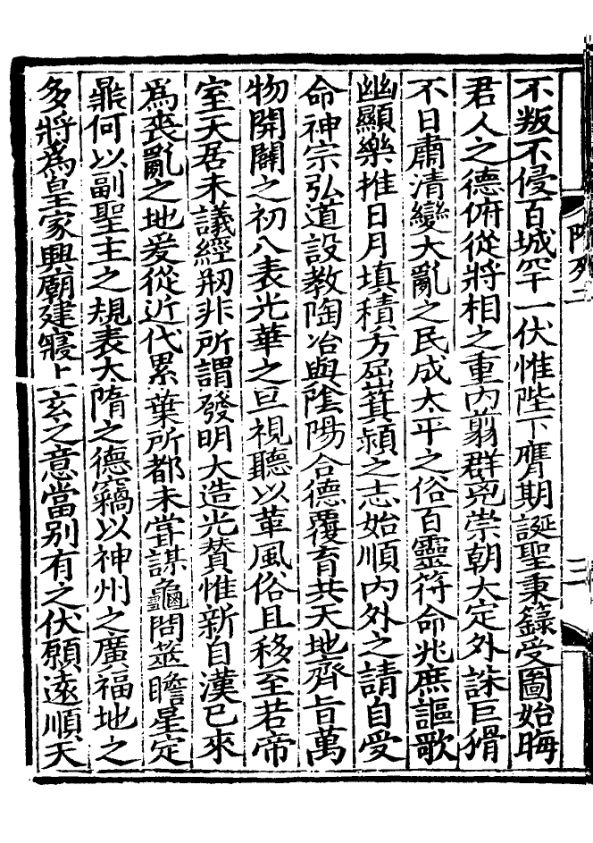 不叛不侵百城罕一伏惟陛下膺期誕聖秉籙受圖始晦
君人之德俯從將相之重内翦群兇崇朝大定外誅巨猾
不日肅清變大亂之民成太平之俗百靈符命兆庶謳歌
幽顯樂推日月填積方屈箕潁之志始順内外之請自受
命神宗弘道設教陶冶與陰陽合德覆育共天地齊旨萬
物開闢之初八表光華之旦視聽以革風俗且移至若帝
室天居未議經刱非所謂發明大造光賛惟新自漢已來
爲喪亂之地爰從近代累葉所都未嘗謀龜問筮瞻星定
鼎何以副聖主之規表大隋之德竊以神州之廣福地之
多將爲皇家興廟建寢上玄之意當别有之伏願遠順天
隋列二
三